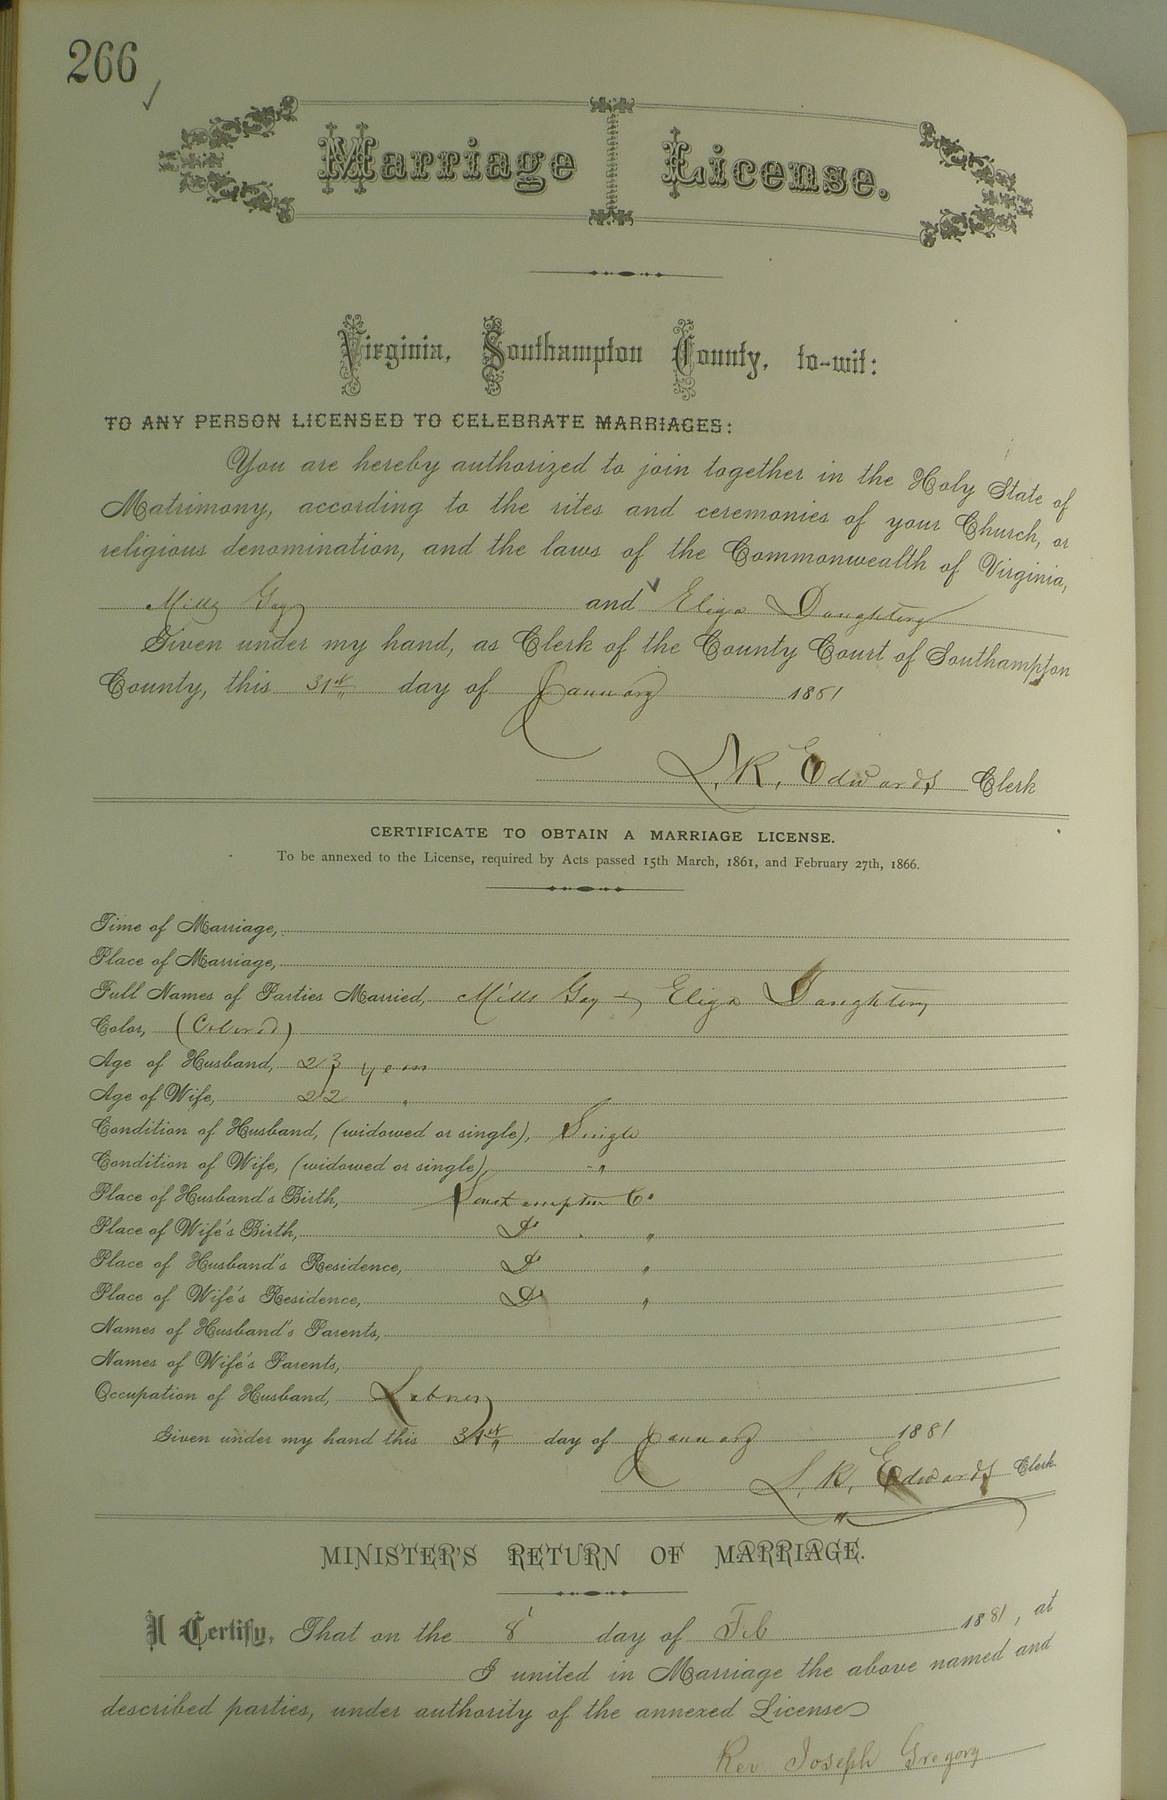 266
Marriage License.
Virginia, Southampton County, to-wit:
TO ANY PERSON LICENSED TO CELEBRATE MARRIAGES:
You are hereby authorized to join together in the Holy State of
Matrimony, according to the rites and ceremonies of your Church, or
religious denomination, and the laws of the Commonwealth of Virginia,
Mills Gay and Eliza Daughtery
Given under my hand, as Clerk of the County Court of Southampton
County, this 31st day of January 1881
L. R. Edwards Clerk
CERTIFICATE TO OBTAIN A MARRIAGE LICENSE.
To be annexed to the License, required by Acts passed 15th March, 1861, and February 27th, 1866.
Time of Marriage,
Place of Marriage,
Full Names of Parties Married, Mills Gay + Eliza Daughtery
Color, (Colored)
Age of Husband, 23 years
Age of Wife, 22 "
Condition of Husband, (widowed or single), Single
Condition of Wife, (widowed or single), "
Place of Husband's Birth, Southampton Co
Place of Wife's Birth, Do "
Place of Husband's Residence, Do "
Place of Wife's Residence, Do "
Names of Husband's Parents,
Names of Wife's Parents,
Occupation of Husband, Laborer
Given under my hand this 31st day of January 1881
L. R. Edwards Clerk
MINISTER'S RETURN OF MARRIAGE.
I Certify, That on the 8 day of Feb 1881, at
I united in Marriage the above named and
described parties, under authority of the annexed License
Rev Joseph Gregory